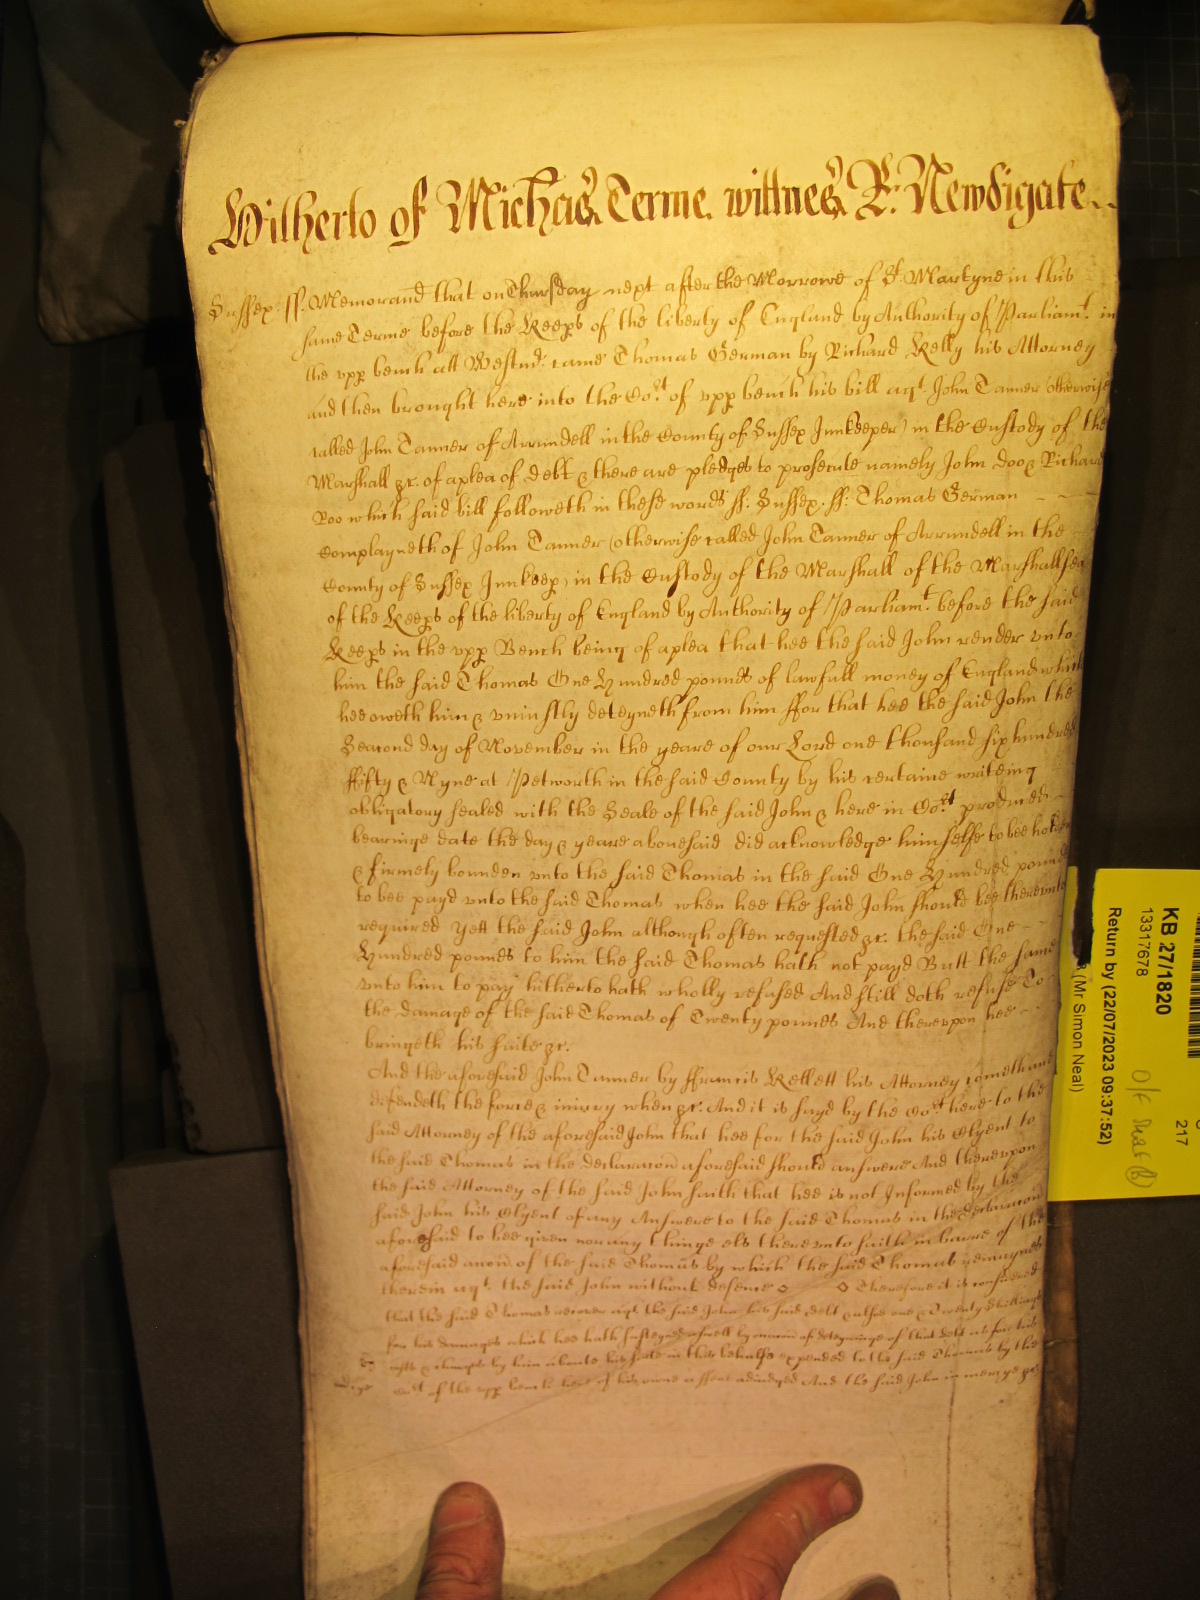 Hitherto of Michaes Terme wittnes R: Newdigate
Sussex ff. Memorand that on Thursday next after the Morrowe of St. Martyne in this
same Terme before the Keeps of the liberty of England by Authority of Parliamt. in
the upp bench att Westm: came Thomas German by Richard Kelly his Attorney
and then brought here into the Cort of upp bench his bill agt. John Tanner (otherwise
called John Tanner of Arrundell in the County of Sussex Innkeeper) in the Custody of the
Marshall &c. of a plea of debt & there are pledges to prosecute namely John Doo & Richard
Roo which said bill followeth in these words ff: Sussex. ff: Thomas German
Complayneth of John Tanner (otherwise called John Tanner of Arrundell in the
County of Sussex Innkeep) in the Custody of the Marshall of the Marshallsea
of the Keeps of the liberty of England by Authority of Parliamt. before the said
Keeps in the upp Bench being of a plea that hee the said John render vnto
him the said Thomas One Hundred pounds of lawfull money of England which
hee oweth him & vniustly deteyneth from him ffor that hee the said John the
Second day of November in the yeare of our Lord one thousand six hundred
ffifty & Nyne at Petworth in the said County by his certaine writeing
obligatory sealed with the Seale of the said John & here in Cort produced
bearinge date the day & yeare abouesaid did acknowledge himselfe to bee holden
& firmely bounden vnto the said Thomas in the said One Hundred pounds
to bee payd vnto the said Thomas when hee the said John should bee therevnto
required Yett the said John although often requested &c. the said One
Hundred pounds to him the said Thomas hath not payd Butt the same
vnto him to pay hitherto hath wholly refused And still doth refuse To
the damage of the said Thomas of Twenty pounds And therevpon hee
bringeth his suite &c.
And the aforesaid John Tanner by ffrancis Kellett his Attorney cometh and
defendeth the force & iniury when &c. And it is sayd by the Cort here to the
said Attorney of the aforesaid John that hee for the said John his Clyent to
the said Thomas in the declaracon aforesaid should answere And therevpon
the said Attorney of the said John saith that hee is not Informed by the
said John his Clyent of any Answere to the said Thomas in the Declaracon
aforesaid to bee given nor any thinge els therevnto saith in barre of the
aforesaid accon of the said Thomas by which the said Thomas remaynes
therein agt. the said John without defence Therefore it is considered
that the said Thomas recover agt. the said John his said debt & alsoe one & Twenty shillings
for his damages which hee hath susteyned aswell by occasion of deteyninge of that debt as for his
costs & charges by him aboute his suite in this behalfe expended to the said Thomas by the
Cort of the upp bench here of his owne assent adiudged And the said John in mercye &c.
KB 27/1820
13317678
217
Return by (22/07/2023 09:37:52)
(Mr Simon Neal)